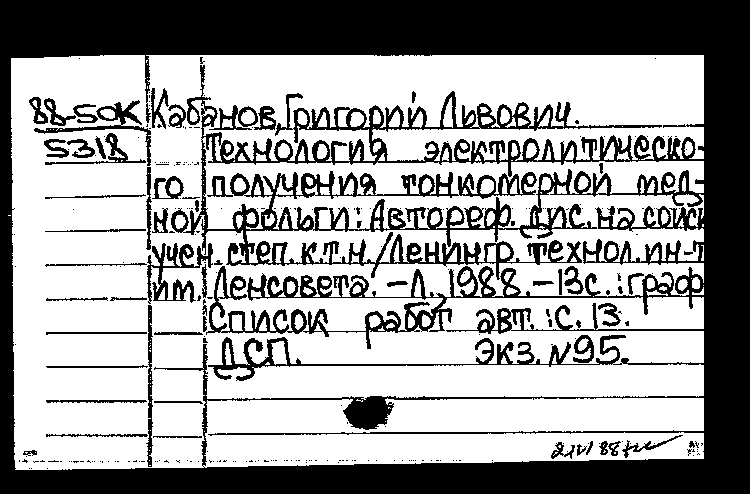 88-50К Кабанов, Григорий Львович.
5318 Технология электролитическо-
го получения тонкомерной мед-
ной фольги: Автореф. дис. на соиск
учен. степ. к.т.н. / Ленингр. технол. ин-т
им. Ленсовета. – Л., 1988. – 13с. : граф
Список работ авт. : с. 13.
ДСП. Экз. N95.